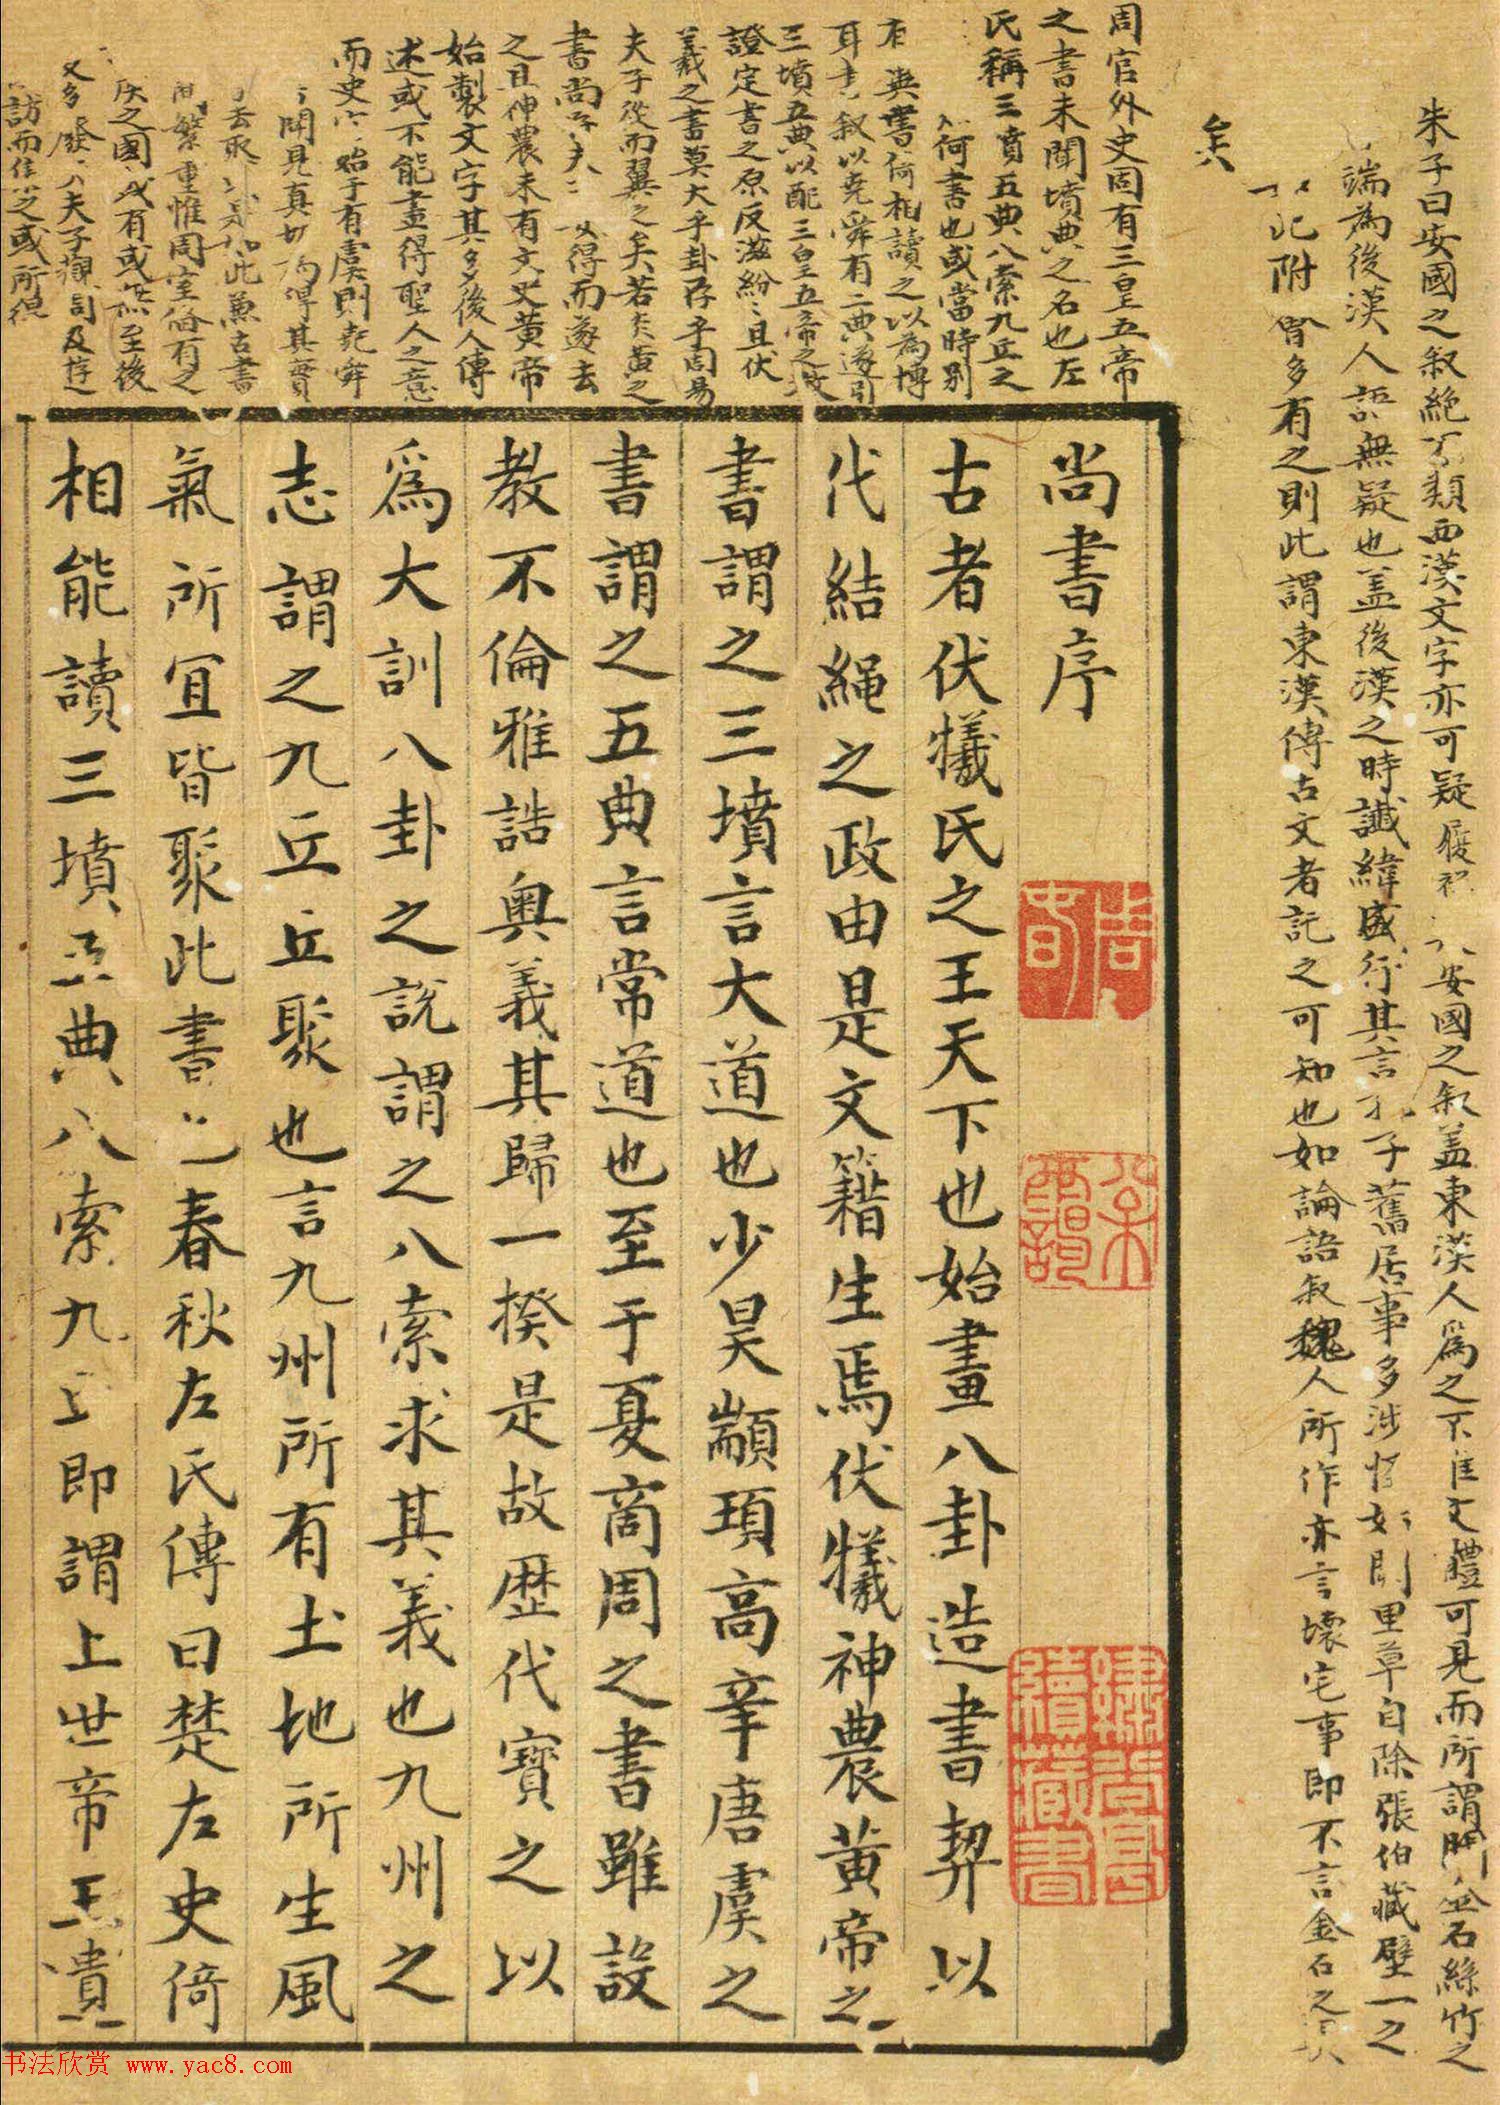 朱子曰安國之叙絶不類西漢文字亦可疑安國之叙盖東漢人為之不惟文體可見而所謂聞金石絲竹之
端為後漢人語無疑也盖後漢之時讖緯盛行其言孔子舊居事多涉如闕里草自除張伯藏璧一之
此附會多有之則此謂東漢傳古文者託之可知也如論語叙魏人所作亦言壞宅事即不言金石之
矣
周官外史固有三皇五帝
之書未聞墳典之名也左
氏稱三賁五典八索九丘之
何書也或當時別
有異書倚相讀之以為博
耳書叙以堯舜有二典遂引
三墳五典以配三皇五帝之
證定書之原反滋紛且伏
羲之書莫大乎卦存乎周易
夫子從而翼之矣若炎黃之
書尚得而遂去
之且神農未有文史黃帝
始製文字其多後人傳
述或不能盡得聖人之意
而史始于有虞則堯舜
聞見真切得其實
去取此無古書
繁重惟周室備有之
之國或有或無至後
又多廢夫子觀周及
訪而之或所得
尚書序
古者伏犧氏之王天下也始畫八卦造書契以
代結繩之政由是文籍生焉伏犧神農黃帝之
書謂之三墳言大道也少昊顓頊高辛唐虞之
書謂之五典言常道也至于夏商周之書雖設
教不倫雅誥奥義其歸一揆是故歴代寶之以
爲大訓八卦之說謂之八索求其義也九州之
志謂之九丘丘聚也言九州所有土地所生風
氣所宜皆聚此書也春秋左氏傳曰楚左史倚
相能讀三墳五典八索九丘即謂上世帝王遺
书法欣赏 www.yac8.com